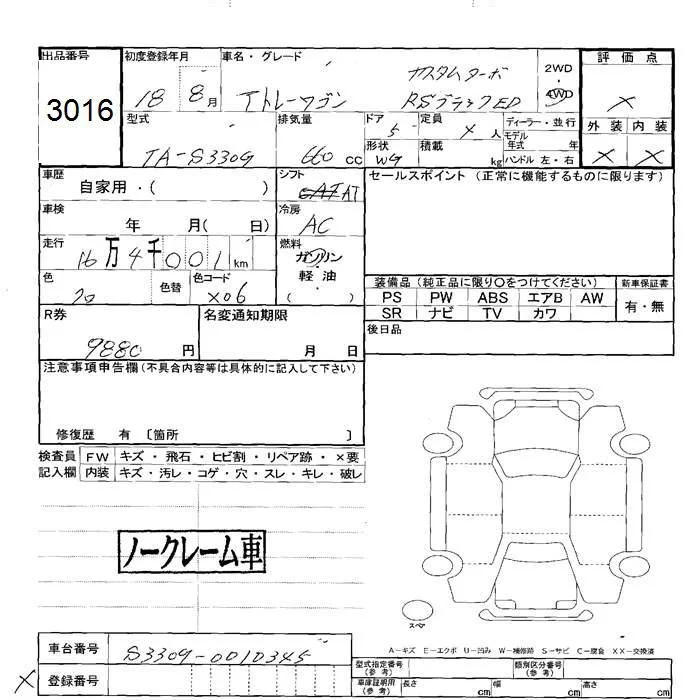 出品番号
初度登録年月
車名・グレード
3016
18 8月
アトレーワゴン
カスタムターボ
RSブラックED
2WD
・
4WD
評価点
×
外装 内装
× ×
型式
TA-S330G
排気量
660 cc
ドア
5
定員
4 人
形状
WG
積載
kg
ディーラー・並行
モデル
年式 年
ハンドル 左・右
車歴
自家用・( )
シフト
AT
セールスポイント (正常に機能するものに限ります)
車検
年 月( 日)
冷房
AC
走行
16万4千001km
燃料
ガソリン
軽油
( )
色
クロ
色替
色コード
X06
装備品 (純正品に限り○をつけてください)
新車保証書
PS PW ABS エアB AW
SR ナビ TV カワ
有・無
R券
9880 円
名変通知期限
月 日
後日品
注意事項申告欄(不具合内容等は具体的に記入して下さい)
修復歴 有 〔箇所 〕
検査員 FW キズ・飛石・ヒビ割・リペア跡・×要
記入欄 内装 キズ・汚レ・コゲ・穴・スレ・キレ・破レ
ノークレーム車
スペア
A-キズ E-エクボ U-凹み W-補修跡 S-サビ C-腐食 XX-交換済
車台番号
S330G-0010345
× 登録番号
型式指定番号
(参考)
類別区分番号
(参考)
車庫証明用
(参考)
長さ cm 幅 cm 高さ cm